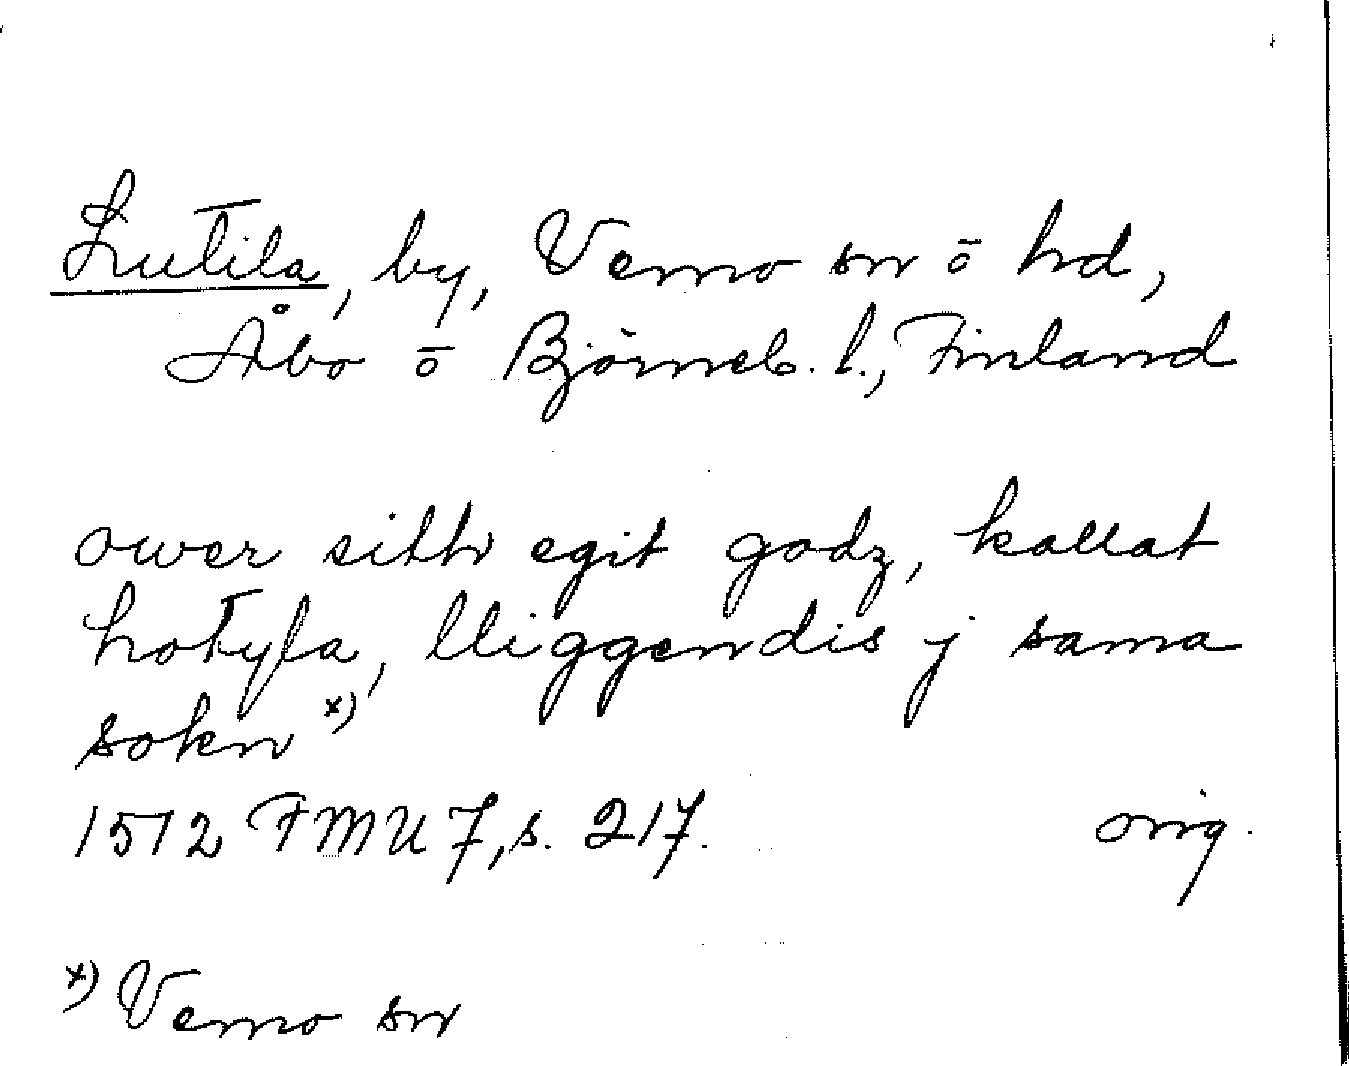 Lutila, by, Vemo sn ō hd,
Åbo ō Björneb. l., Finland
ower sitth egit godz, kallat
Lotyla, lliggendis j sama
sokn x)
1512 FMU 7, s. 217. orig.
x) Vemo sn